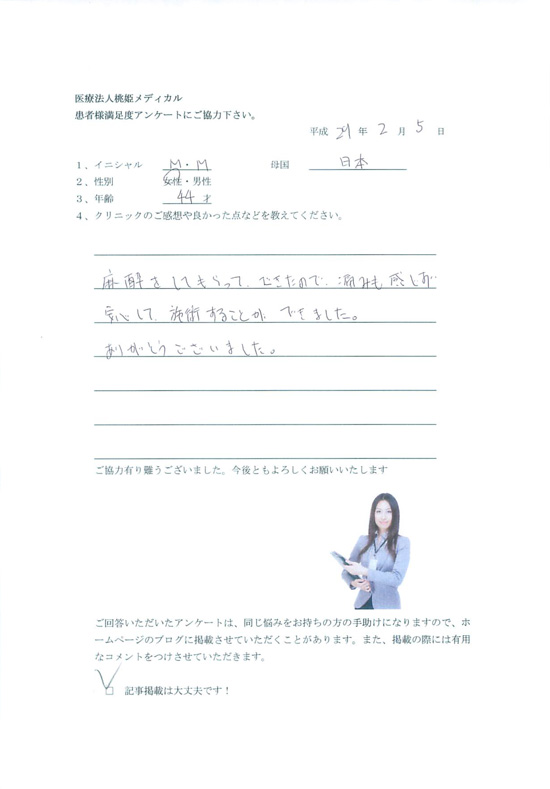 医療法人桃姫メディカル
患者様満足度アンケートにご協力下さい。
平成 29 年 2 月 5 日
1、イニシャル M・M 母国 日本
2、性別 女性・男性
3、年齢 44才
4、クリニックのご感想や良かった点などを教えてください。
麻酔をしてもらって、できたので、痛みも感じず
安心して、施術することができました。
ありがとうございました。
ご協力有り難うございました。今後ともよろしくお願いいたします
ご回答いただいたアンケートは、同じ悩みをお持ちの方の手助けになりますので、ホ
ームページのブログに掲載させていただくことがあります。また、掲載の際には有用
なコメントをつけさせていただきます。
□ 記事掲載は大丈夫です！